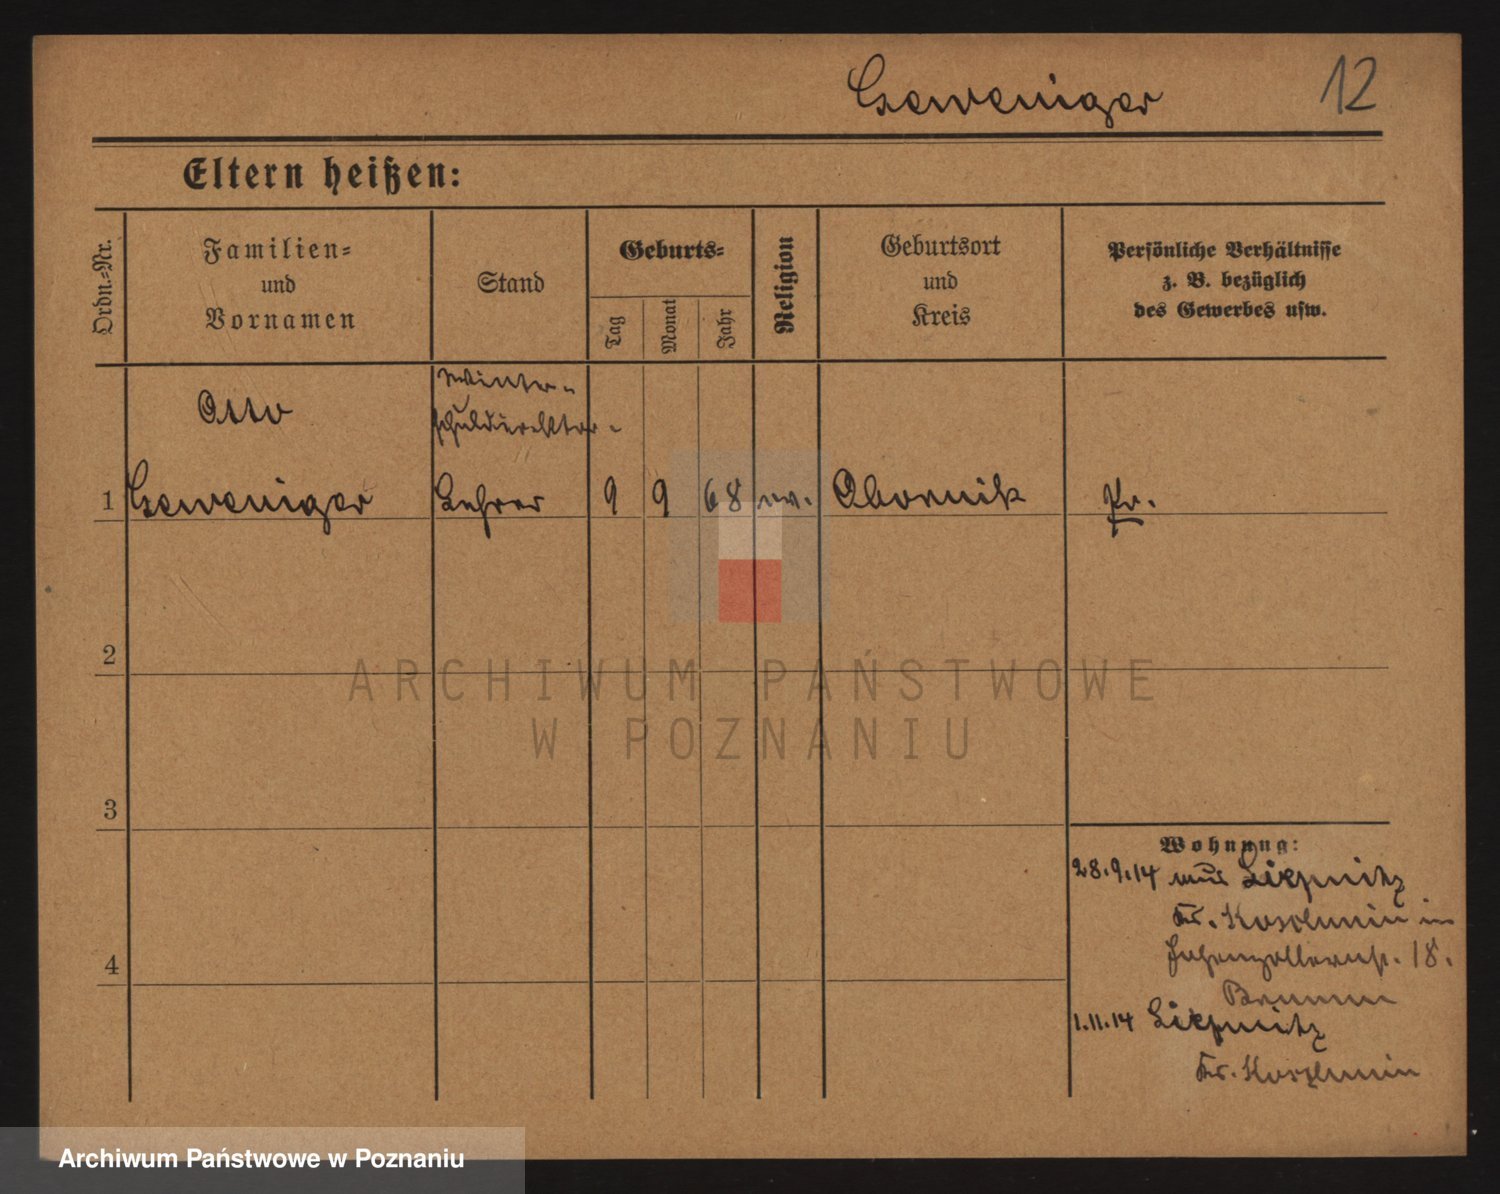 Geweniger 12
Eltern heißen:
Ordn.-Nr.
Familien-
und
Vornamen
Stand
Geburts-
Tag
Monat
Jahr
Religion
Geburtsort
und
Kreis
Persönliche Verhältnisse
z. B. bezüglich
des Gewerbes usw.
Otto
Winter-
schuldirektor-
1 Geweniger Lehrer 9 9 68 ev. Obornik Pr.
2
3
4
Wohnung:
28.9.14 aus
Kr. Koschmin in
Hohenzollernstr. 18.
1.11.14
Kr. Koschmin
ARCHIWUM PAŃSTWOWE
W POZNANIU
Archiwum Państwowe w Poznaniu